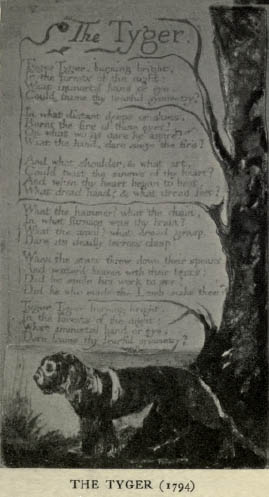 The Tyger.
Tyger Tyger, burning bright,
In the forests of the night:
What immortal hand or eye,
Could frame thy fearful symmetry?
In what distant deeps or skies,
Burnt the fire of thine eyes?
On what wings dare he aspire?
What the hand, dare sieze the fire?
And what shoulder, & what art,
Could twist the sinews of thy heart?
And when thy heart began to beat,
What dread hand? & what dread feet?
What the hammer? what the chain,
In what furnace was thy brain?
What the anvil? what dread grasp,
Dare its deadly terrors clasp?
When the stars threw down their spears
And water'd heaven with their tears:
Did he smile his work to see?
Did he who made the Lamb make thee?
Tyger Tyger burning bright,
In the forests of the night:
What immortal hand or eye,
Dare frame thy fearful symmetry?
THE TYGER (1794)